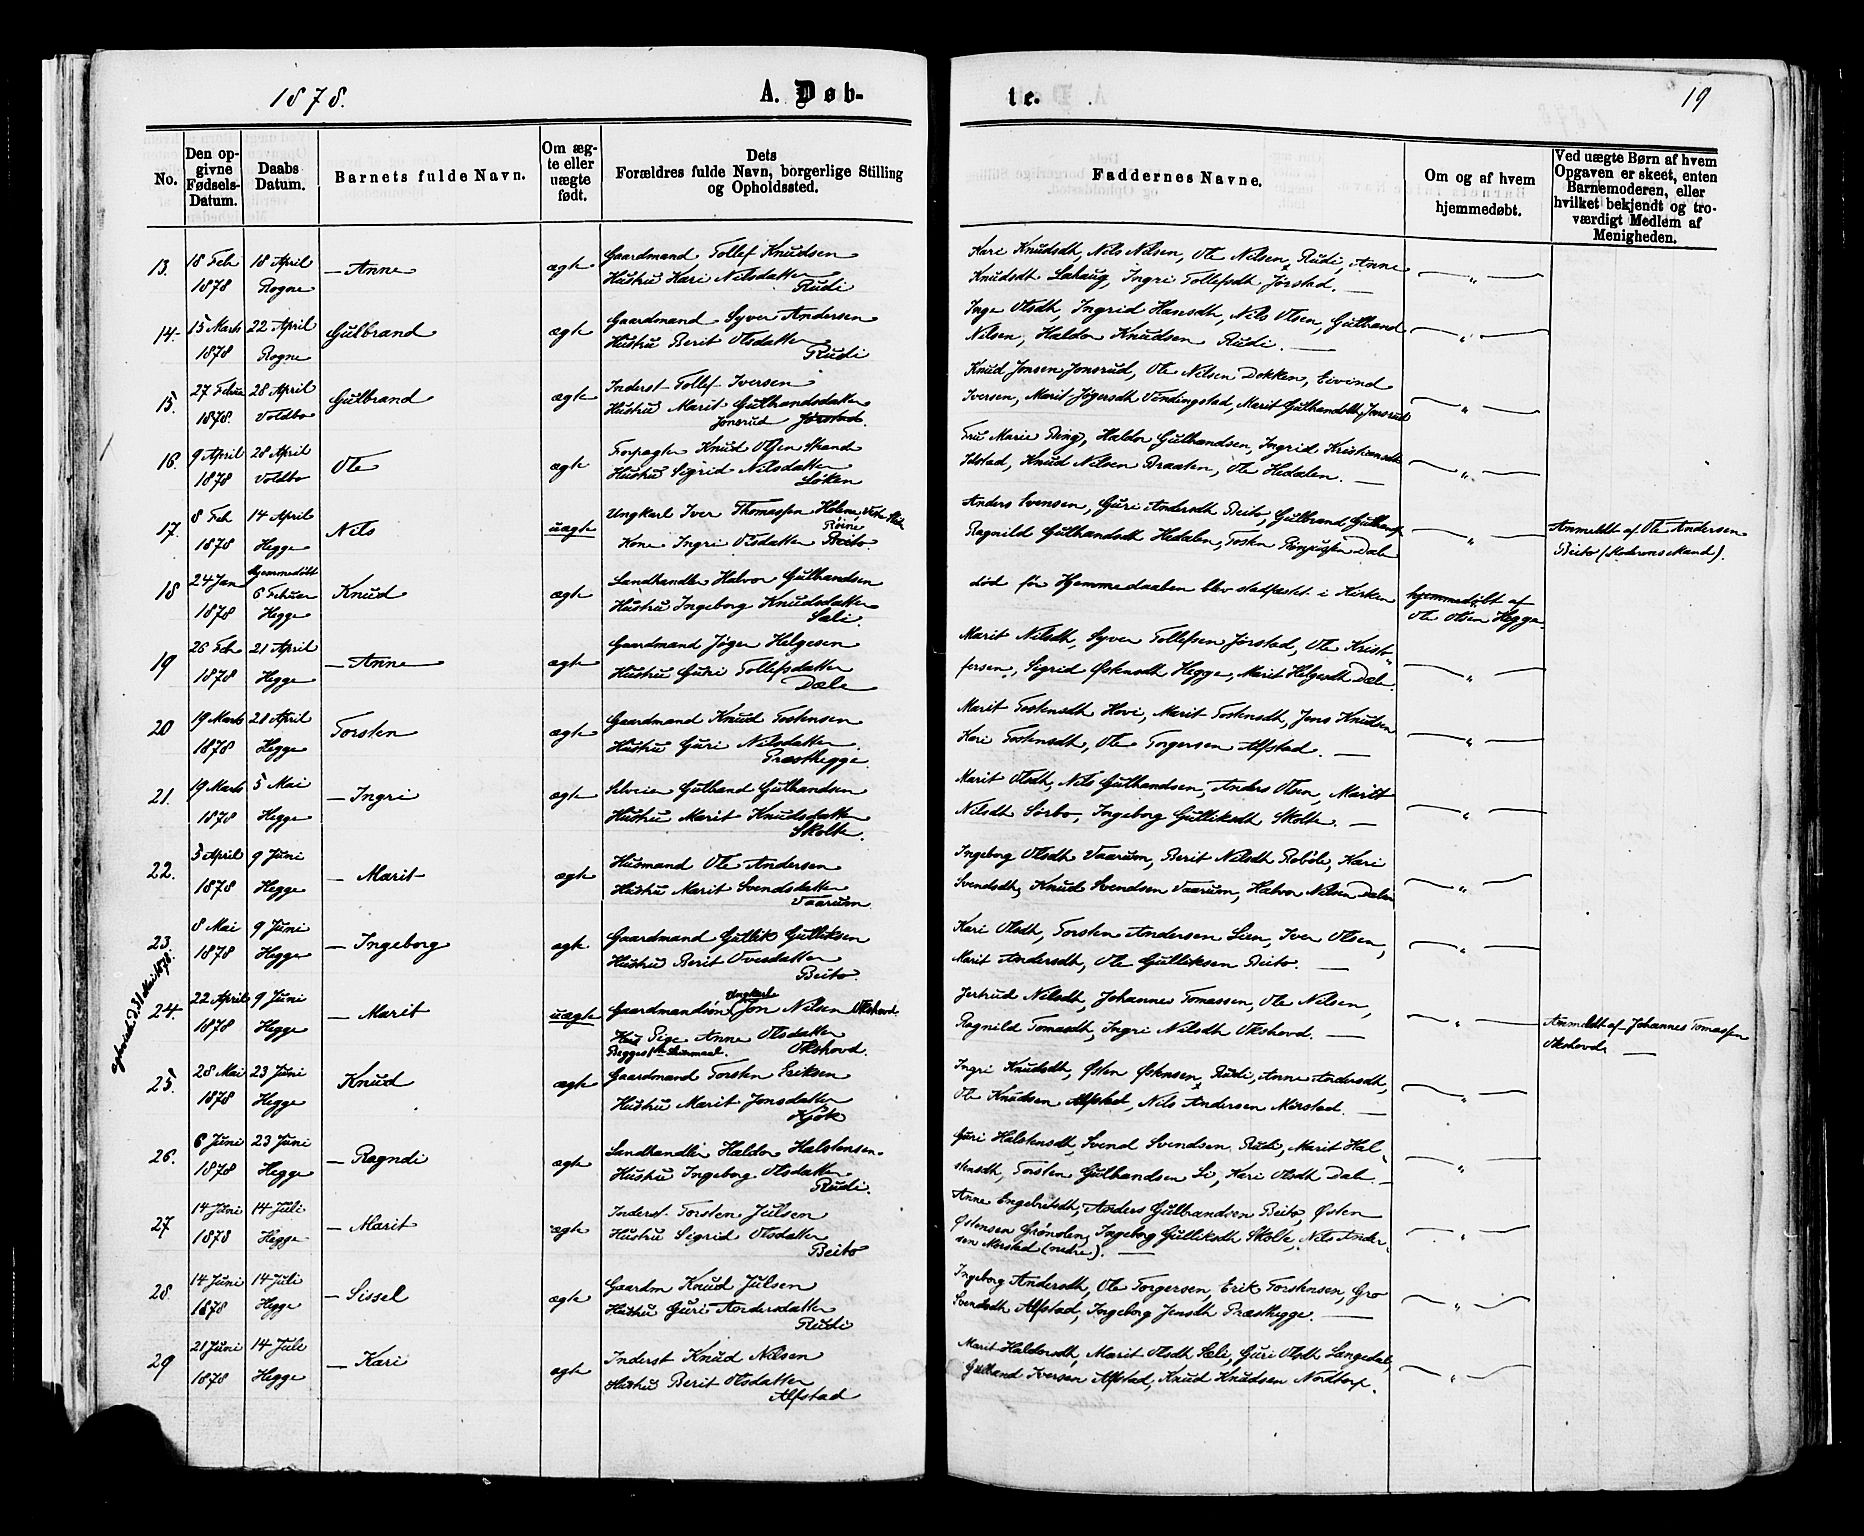 1878.
A. Døb-
te.
19
No.
Den op-
givne
Fødsels-
Datum.
Daabs
Datum.
Barnets fulde Navn.
Om æg-
te eller
uægte
født.
Dets
Forældres fulde Navn, borgerlige Stilling
og Opholdssted.
Faddernes Navne.
Om og af hvem
hjemmedøbt.
Ved uægte Børn af hvem
Opgaven er skeet, enten
Barnemoderen, eller
hvilket bekjendt og tro-
værdigt Medlem af
Menigheden.
13. 18 Feb 18 April
1878 Rogne
— Anne
ægte
Gaardmand Tollef Knudsen
Hustru Kari Nilsdatter
Rudi
Kari Knudsdt, Nils Nilsen, Ole Nilsen, Rudi, Anne
Knudsdt Lahaug, Ingri Tollefsdt, Jørstad. —
14. 15 Marts 22 April
1878 Rogne
Gulbrand
ægte
Gaardmand Syver Andersen
Hustru Berit Olsdatter
Rudi
Inge Olsdt, Ingrid Hansdt, Nils Olsen, Gulbrand
Nilsen, Haldor Knudsen Rudi. —
15. 27 Februar 28 April
1878. Voldbo
Gulbrand
ægte
Inderst Tollef Iversen
Hustru Marit Gulbrandsdatter
Jonsrud Jørstad.
Knud Jonsen Jonsrud, Ole Nilsen Dokken, Eivind
Iversen, Marit Jøgersdt Vindingstad, Marit Gulbrandsdt, Jonsrud
16. 9 April 28 April
1878 Voldbo
Ole
ægte
Forpagter Knud Olsen Strand
Hustru Sigrid Nilsdatter
Løken
Fru Marie Ring, Haldor Gulbrandsen, Ingrid Kristiansdt
Idstad, Knud Nilsen Braaten, Ole Hedalen. —
17. 8 Feb 14 April
1878 Hegge
Nils
uægte
Ungkarl Iver Thomassen Holene, Vest Slidre
Kone Ingri Olsdatter Beito.
Anders Evensen, Guri Andersdt Beito, Gulbrand Gulbrands
Ragnild Gulbrandsdt Hedalen, Dale
Anmeldt af Ole Andersen
Beito (Moderens Mand).
18 24 Jan hjemmedøbt
6 Februar
1878 Hegge
Knud
ægte
Landhandler Halvor Gulbrandsen
Hustru Ingeborg Knudsdatter
Sæli.
død før Hjemmedaaben blev stadfæstet i Kirken
hjemmedøbt af
Ole Olsen Hegge.
19 26 Feb 21 April
1878 Hegge
— Anne
ægte
Gaardmand Jøger Helgesen
Hustru Guri Tollefsdatter
Dæle
Marit Nilsdt, Syver Tollefsen Jørstad, Ole Kristo-
fersen, Sigrid Østensdt Hegge, Marit Helgesdt Dæle.
20 19 Marts 21 April
1878 Hegge
Torsten
ægte
Gaardmand Knud Tostensen
Hustru Guri Nilsdatter.
Præsthegge.
Marit Tostensdt Hovi, Marit Tostensdt, Jens Knudsen
Kari Tostensdt, Ole Torgersen Alfstad. —
21. 19 Marts 5 Mai
1878 Hegge
— Ingri
ægte
Selveier Gulbrand Gulbrandsen
Hustru Marit Knudsdatter
Skolte.
Marit Olsdt, Nils Gulbrandsen, Anders Olsen, Marit
Nilsdt Sørbo, Ingeborg Gulliksdt Skolte. —
22. 5 April 9 Juni
1878 Hegge
— Marit
ægte
Husmand Ole Andersen
Hustru Marit Svendsdatter
Vaarum
Ingeborg Olsdt Vaarum, Berit Nilsdt Robøle, Kari
Svendsdt, Knud Svendsen Vaarum, Halvor Nilsen Dalen
23. 8 Mai 9 Juni
1878 Hegge
— Ingeborg
ægte
Gaardmand Gullik Gulliksen
Hustru Berit Ovesdatter
Beito.
Kari Olsdt, Torsten Andersen Lien, Iver Olsen,
Marit Andersdt, Ole Gulliksen Beito. —
24. 22 April 9 Juni
1878 Hegge
— Marit
uægte
Ungkarl
Gaardmandsøn Jon Nilsen Okshovd.
Pige Anne Olsdatter
Begges 1ste Leiermaal. Okshovd.
Jertrud Nilsdt, Johannes Tomassen, Ole Nilsen,
Ragnild Tomasdt, Ingri Nilsdt Okshovd. —
Anmeldt af Johannes Tomassen
Okshovd. —
25. 28 Mai 23 Juni
1878 Hegge
Knud
ægte
Gaardmand Torsten Eriksen
Hustru Marit Jonsdatter
Kjøk
Ingri Knudsdt, Østen Østensen, Rudi, Anne Andersdt,
Ole Knudsen Alfstad, Nils Andersen Mørstad. —
26. 6 Juni 23 Juni
1878 Hegge
— Ragndi
ægte
Landhandler Haldor Halstensen
Hustru Ingeborg Olsdatter
Rudi.
Guri Halstensdt, Svend Svendsen Rudi, Marit Hal-
stensdt, Torsten Gulbrandsen Li, Kari Olsdt Dale. —
27 14 Juni 14 Juli
1878 Hegge.
— Marit
ægte
Inderst Torsten Julsen
Hustru Sigrid Olsdatter
Beito
Anne Engebretsdt, Anders Gulbrandsen Beito, Østen
Østensen Grønolen, Ingeborg Gulliksdt Skolte, Nils Ander-
sen Mørstad (nedre). —
28. 14 Juni 14 Juli
1878 Hegge
— Sissel
ægte
Gaardm Knud Julsen
Hustru Guri Andersdatter
Rudi
Ingeborg Andersdt, Ole Torgersen, Erik Torstensen, Gro
Svendsdt Alfstad, Ingeborg Jensdt Præsthegge. —
29 21 Juni 14 Juli
1878 Hegge
— Kari
ægte
Inderst Knud Nilsen
Hustru Berit Olsdatter
Alfstad
Marit Haldorsdt, Marit Olsdt Sæli, Guri Olsdt Langedal,
Gulbrand Iversen Alfstad, Knud Knudsen Nordtorp.